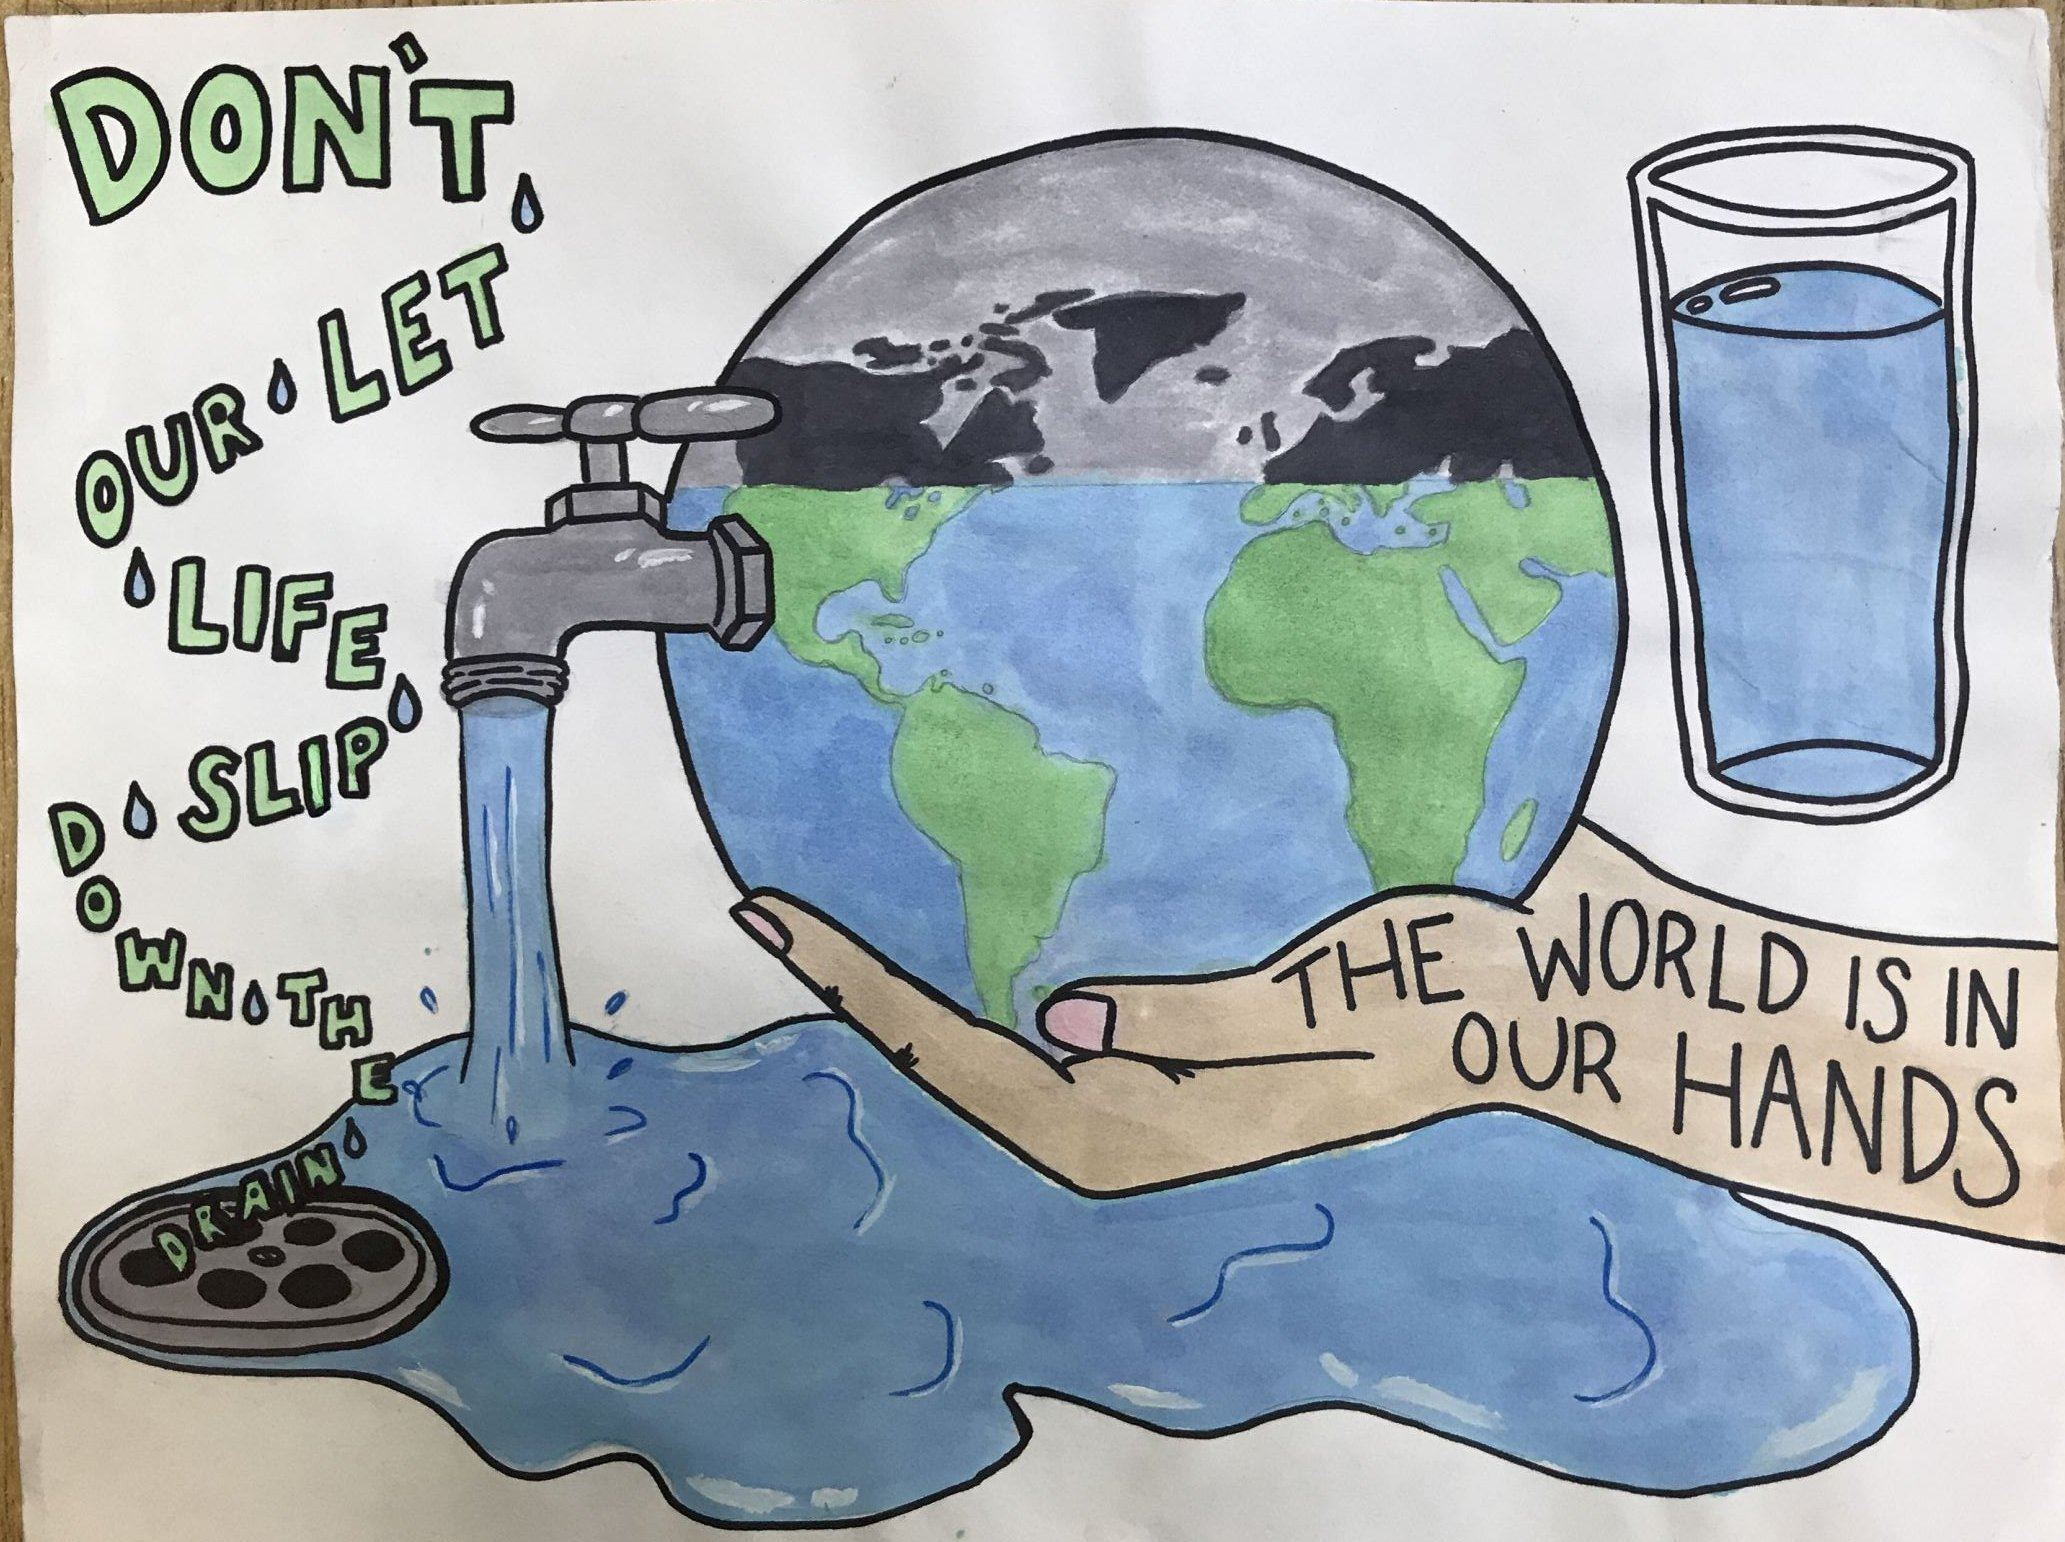 DON'T
LET
OUR
LIFE
SLIP
DOWN THE
DRAIN
THE WORLD IS IN
OUR HANDS